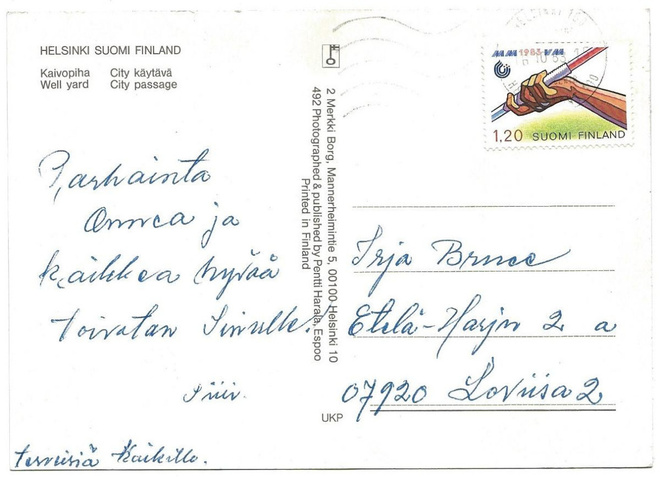 HELSINKI SUOMI FINLAND
Kaivopiha City käytävä
Well yard City passage
Parhainta
Onnea ja
kaikkea hyvää
Toivotan Sinulle.
Siiri.
terveisiä Kaikille.
2 Merkki Borg, Mannerheimintie 5, 00100 Helsinki 10
492 Photographed & published by Pentti Harala, Espoo
Printed in Finland
UKP
MM 1983 VM
1,20 SUOMI FINLAND
HELSINKI
Irja Bruce
Etelä-Harjn 2 a
07920 Loviisa 2